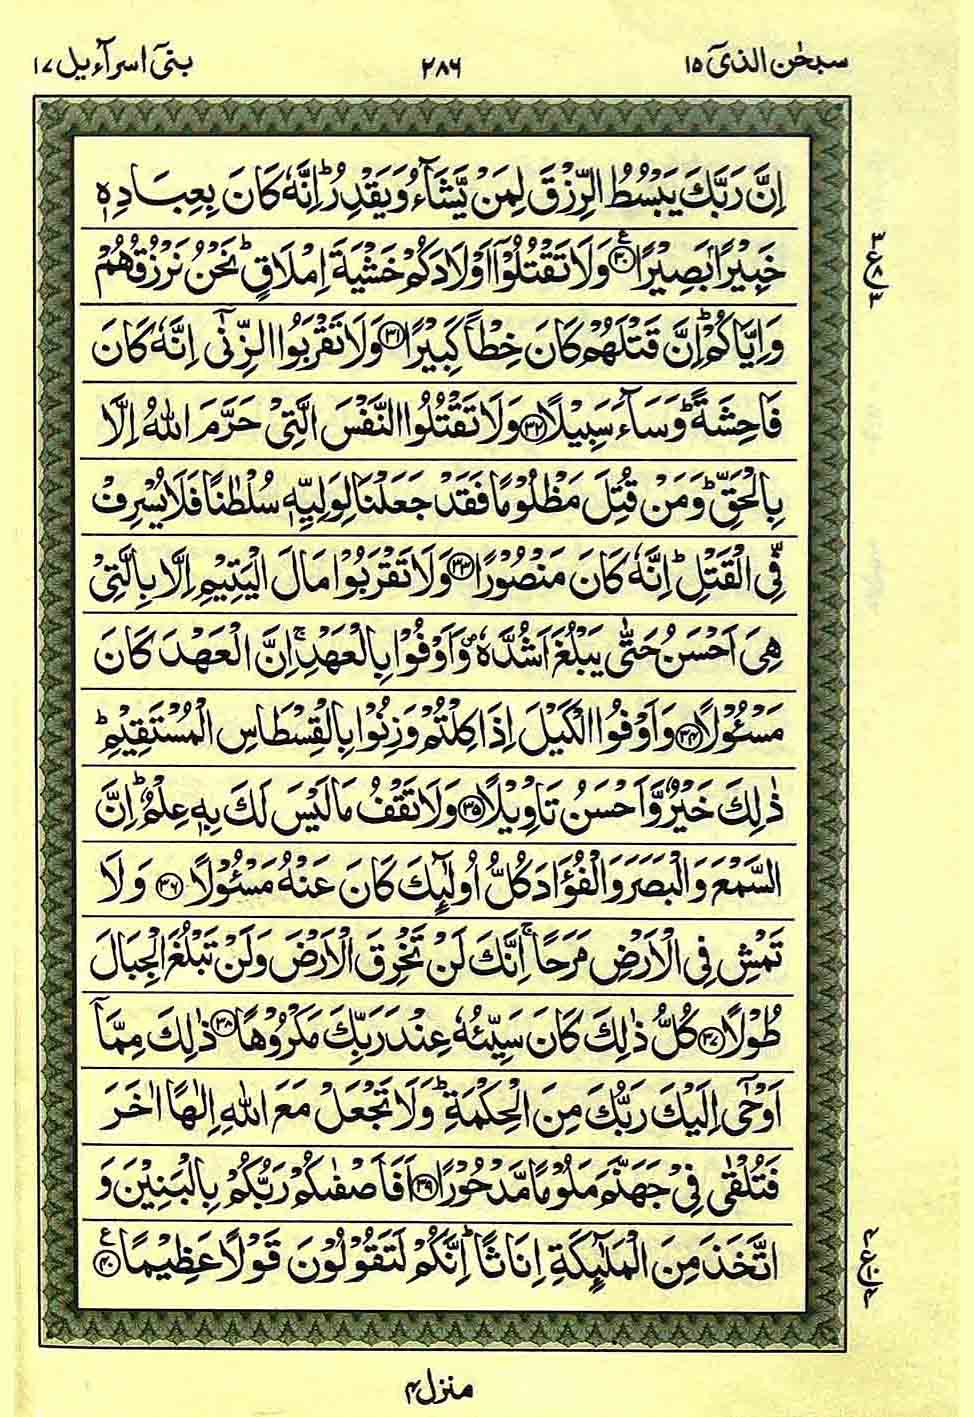 سبحٰن الذیٓ ۱۵
۲۸۶
بنیٓ اسرآءیل ۱۷
اِنَّ رَبَّكَ يَبْسُطُ الرِّزْقَ لِمَنْ يَّشَآءُ وَيَقْدِرُ ؕ اِنَّهٗ كَانَ بِعِبَادِهٖ
خَبِيْرًۢا بَصِيْرًا ۟ع۳۰ وَلَا تَقْتُلُوْۤا اَوْلَادَكُمْ خَشْيَةَ اِمْلَاقٍ ؕ نَحْنُ نَرْزُقُهُمْ
وَاِيَّاكُمْ ؕ اِنَّ قَتْلَهُمْ كَانَ خِطْاً كَبِيْرًا ۳۱ وَلَا تَقْرَبُوا الزِّنٰۤى اِنَّهٗ كَانَ
فَاحِشَةً ؕ وَسَآءَ سَبِيْلًا ۳۲ وَلَا تَقْتُلُوا النَّفْسَ الَّتِيْ حَرَّمَ اللّٰهُ اِلَّا
بِالْحَقِّ ؕ وَمَنْ قُتِلَ مَظْلُوْمًا فَقَدْ جَعَلْنَا لِوَلِيِّهٖ سُلْطٰنًا فَلَا يُسْرِفْ
فِّي الْقَتْلِ ؕ اِنَّهٗ كَانَ مَنْصُوْرًا ۳۳ وَلَا تَقْرَبُوْا مَالَ الْيَتِيْمِ اِلَّا بِالَّتِيْ
هِيَ اَحْسَنُ حَتّٰى يَبْلُغَ اَشُدَّهٗ ۪ وَاَوْفُوْا بِالْعَهْدِ ۚ اِنَّ الْعَهْدَ كَانَ
مَسْـُٔوْلًا ۳۴ وَاَوْفُوا الْكَيْلَ اِذَا كِلْتُمْ وَزِنُوْا بِالْقِسْطَاسِ الْمُسْتَقِيْمِ ؕ
ذٰلِكَ خَيْرٌ وَّاَحْسَنُ تَاْوِيْلًا ۳۵ وَلَا تَقْفُ مَا لَيْسَ لَكَ بِهٖ عِلْمٌ ؕ اِنَّ
السَّمْعَ وَالْبَصَرَ وَالْفُؤَادَ كُلُّ اُولٰٓئِكَ كَانَ عَنْهُ مَسْـُٔوْلًا ۳۶ وَلَا
تَمْشِ فِي الْاَرْضِ مَرَحًا ۚ اِنَّكَ لَنْ تَخْرِقَ الْاَرْضَ وَلَنْ تَبْلُغَ الْجِبَالَ
طُوْلًا ۳۷ كُلُّ ذٰلِكَ كَانَ سَيِّئُهٗ عِنْدَ رَبِّكَ مَكْرُوْهًا ۳۸ ذٰلِكَ مِمَّاۤ
اَوْحٰۤى اِلَيْكَ رَبُّكَ مِنَ الْحِكْمَةِ ؕ وَلَا تَجْعَلْ مَعَ اللّٰهِ اِلٰهًا اٰخَرَ
فَتُلْقٰى فِيْ جَهَنَّمَ مَلُوْمًا مَّدْحُوْرًا ۳۹ اَفَاَصْفٰىكُمْ رَبُّكُمْ بِالْبَنِيْنَ وَ
اتَّخَذَ مِنَ الْمَلٰٓئِكَةِ اِنَاثًا ؕ اِنَّكُمْ لَتَقُوْلُوْنَ قَوْلًا عَظِيْمًا ع۴۰
منزل ۴